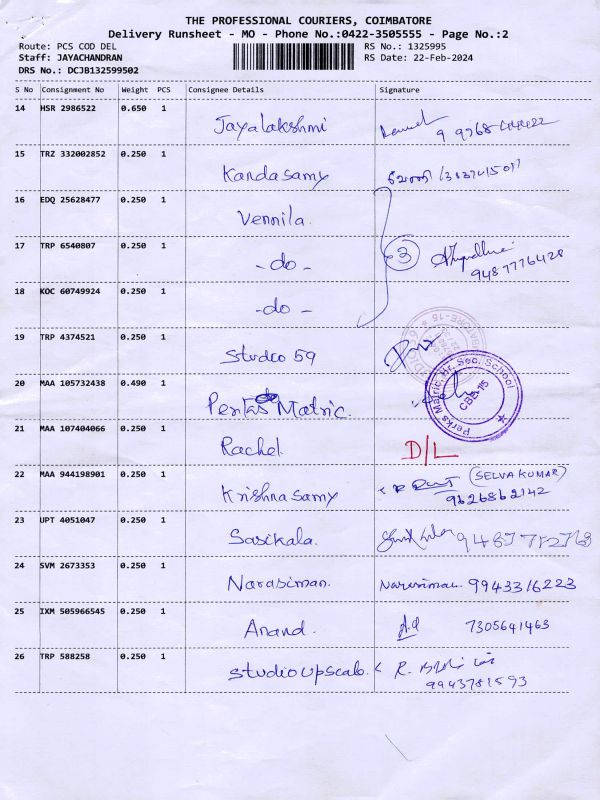 THE PROFESSIONAL COURIERS, COIMBATORE
Delivery Runsheet - MO - Phone No.:0422-3505555 - Page No.:2
Route: PCS COD DEL
RS No.: 1325995
Staff: JAYACHANDRAN
RS Date: 22-Feb-2024
DRS No.: DCJB132599502
S No Consignment No Weight PCS Consignee Details Signature
14 HSR 2986522 0.650 1 Jayalakshmi
15 TRZ 332002852 0.250 1 Kandasamy
16 EDQ 25628477 0.250 1 Vennila.
17 TRP 6540807 0.250 1 - do - 3 9487776428
18 KOC 60749924 0.250 1 - do -
19 TRP 4374521 0.250 1 Studio 59
20 MAA 105732438 0.490 1 Perks Matric. Perks Matric. Hr. Sec. School CBE-15
21 MAA 107404066 0.250 1 Rachel D/L
22 MAA 944198901 0.250 1 Krishnasamy (SELVA KUMAR)
9626862142
23 UPT 4051047 0.250 1 Sasikala.
24 SVM 2673353 0.250 1 Narasiman. Narasiman 9943316223
25 IXM 505966545 0.250 1 Anand. 7305641463
26 TRP 588258 0.250 1 Studio upscale R.
9943781593